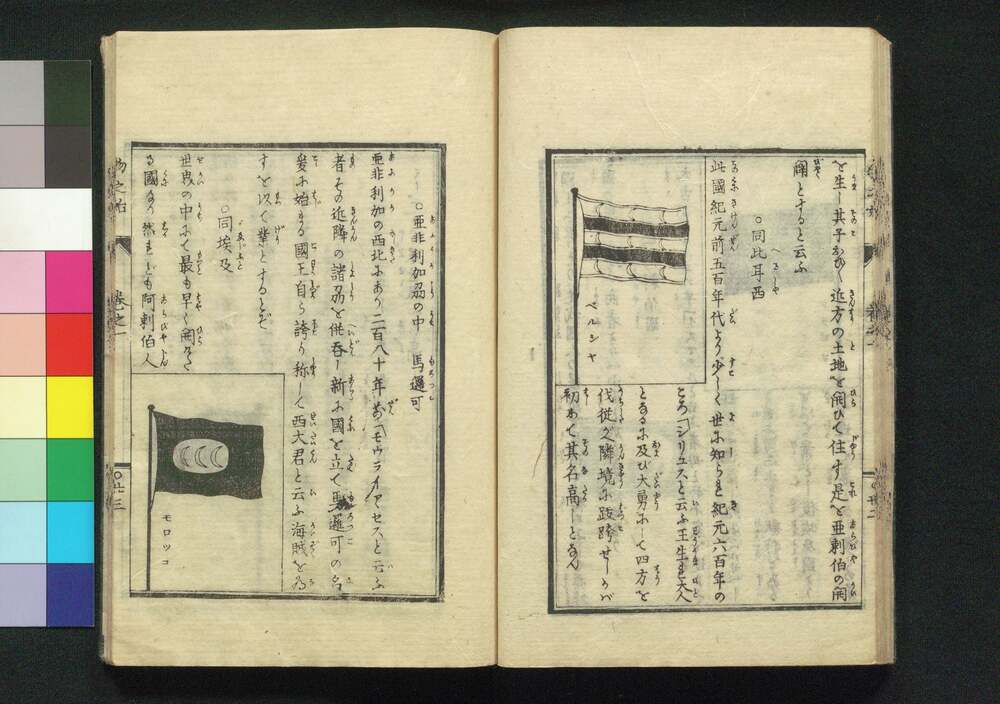 を生し其子おひ〳〵近方の土地を開ひて住す是を亜刺伯の開
闢とすると云ふ
○同比耳西
此國紀元前五百年代より少しく世に知られ紀元六百年の
ころ「シリュス」と云ふ王生れ大人
となるに及び大勇にして四方を
伐従へ隣境に跋跨せしかば
初めて其名高しとなん
ペルシヤ
○亜非利加洲の中 馬邏可
亜非利加の西北にあり二百八十年前「モウライアセス」と云ふ
者その近隣の諸洲を併呑し新に國を立て馬邏可の名
爰に始まる國王自ら誇り称して西大君と云ふ海賊を為
すを以て業とするとぞ
○同埃及
世界の中にて最も早く開けたる
る國なり然れども阿刺伯人
モロッコ
巻之一